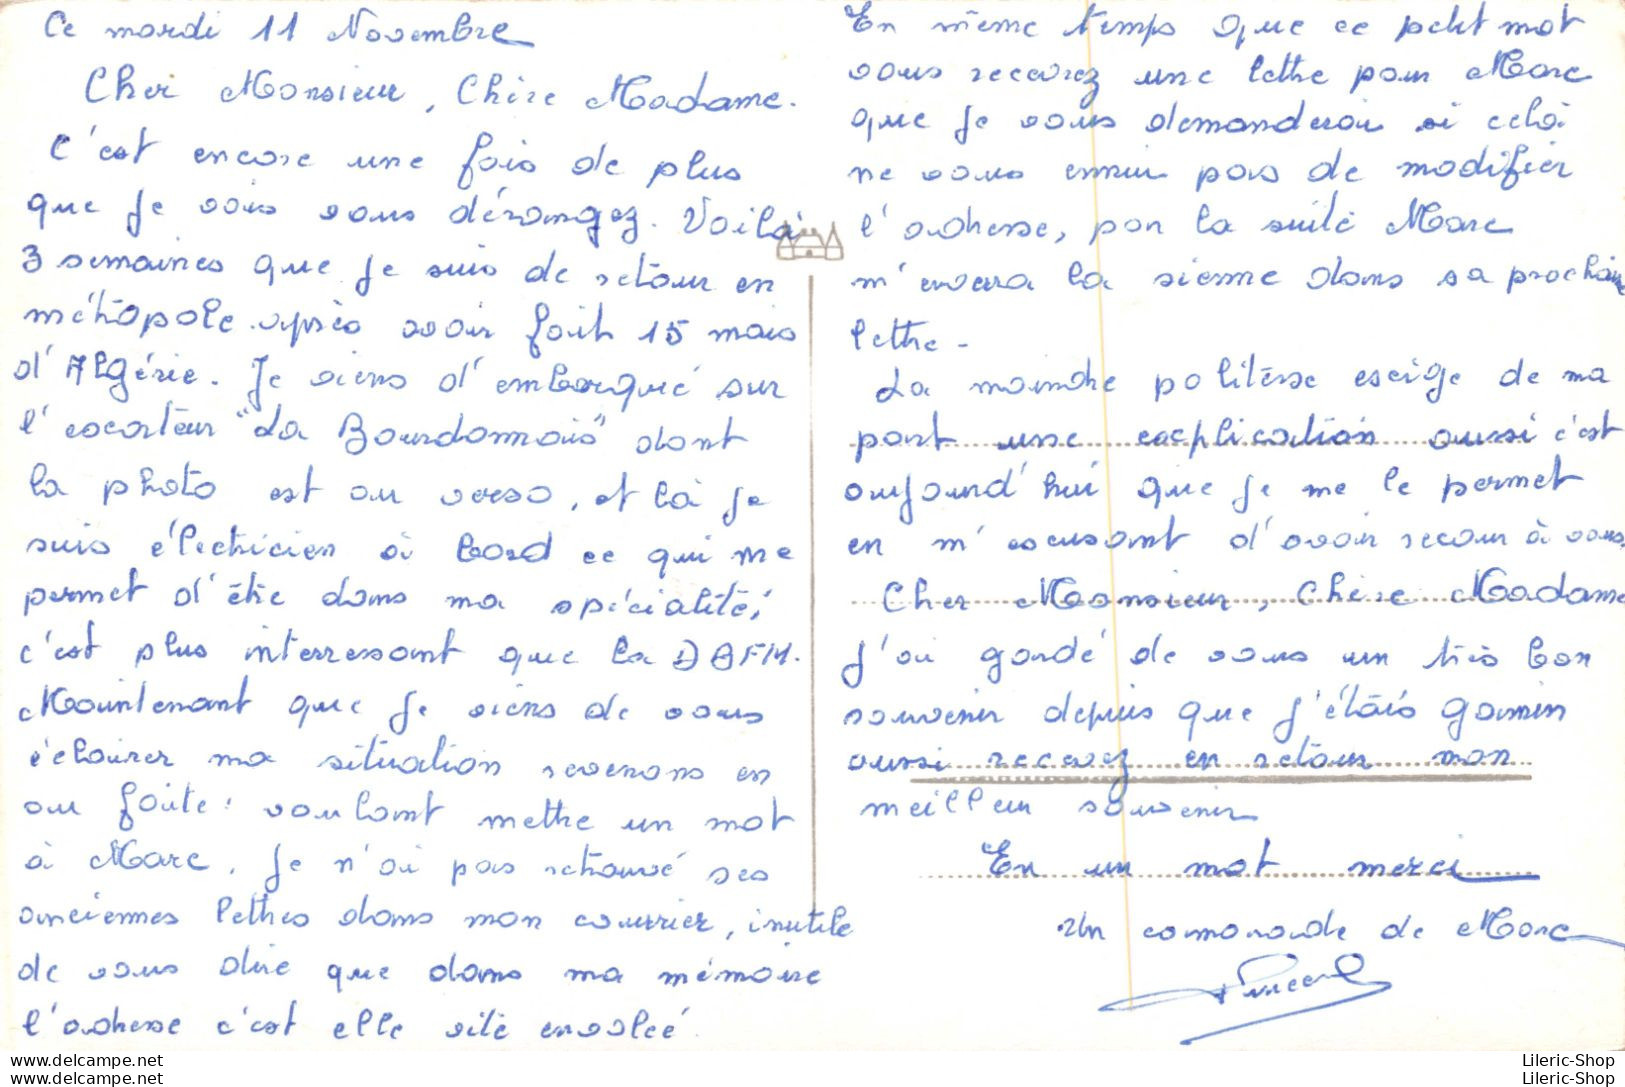 Ce mardi 11 Novembre
Cher Monsieur, Chère Madame.
C'est encore une fois de plus
que je vais vous dérangez. Voilà
3 semaines que je suis de retour en
métropole après avoir fait 15 mois
d'Algérie. Je viens d'embarqué sur
l'escorteur "La Bourdonnais" dont
la photo est au verso, et là je
suis électricien à bord ce qui me
permet d'être dans ma spécialité,
c'est plus interressant que la DBFM.
Maintenant que je viens de vous
éclairer ma situation revenons en
au faite: voulant mettre un mot
à Marc, je n'ai pas retrouvé ses
anciennes lettres dans mon courrier, inutile
de vous dire que dans ma mémoire
l'adresse c'est elle vite envolée.
En même temps que ce petit mot
vous recevrez une lettre pour Marc
que je vous demanderai si celà
ne vous ennui pas de modifier
l'adresse, par la suite Marc
m'enverra la sienne dans sa prochaine
lettre.
La moindre politesse exige de ma
part une explication aussi c'est
aujourd'hui que je me le permet
en m'excusant d'avoir recour à vous.
Cher Monsieur, Chère Madame
j'ai gardé de vous un très bon
souvenir depuis que j'étais gamin
aussi recevez en retour mon
meilleur souvenir
En un mot merci
Un camarade de Marc
Lileric-Shop
delcampe.net
Lileric-Shop
delcampe.net